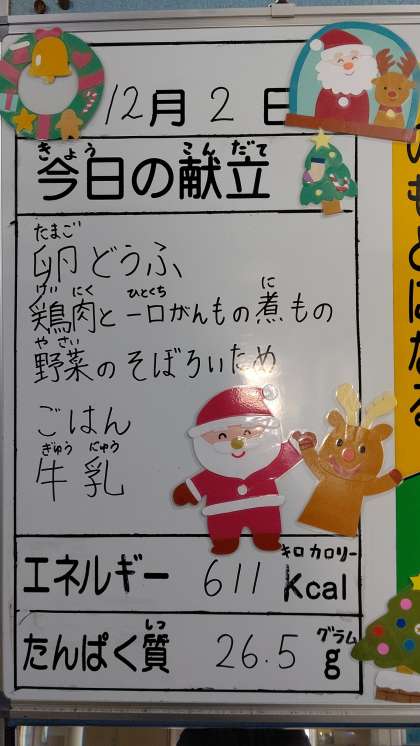 12月2日
きょう こんだて
今日の献立
たまご
卵どうふ
けい にく ひとくち に
鶏肉と一口がんもの煮もの
や さい
野菜のそぼろいため
ごはん
ぎゅう にゅう
牛乳
キロ カロリー
エネルギー 611 Kcal
しつ グラム
たんぱく質 26.5 g
のもとになる